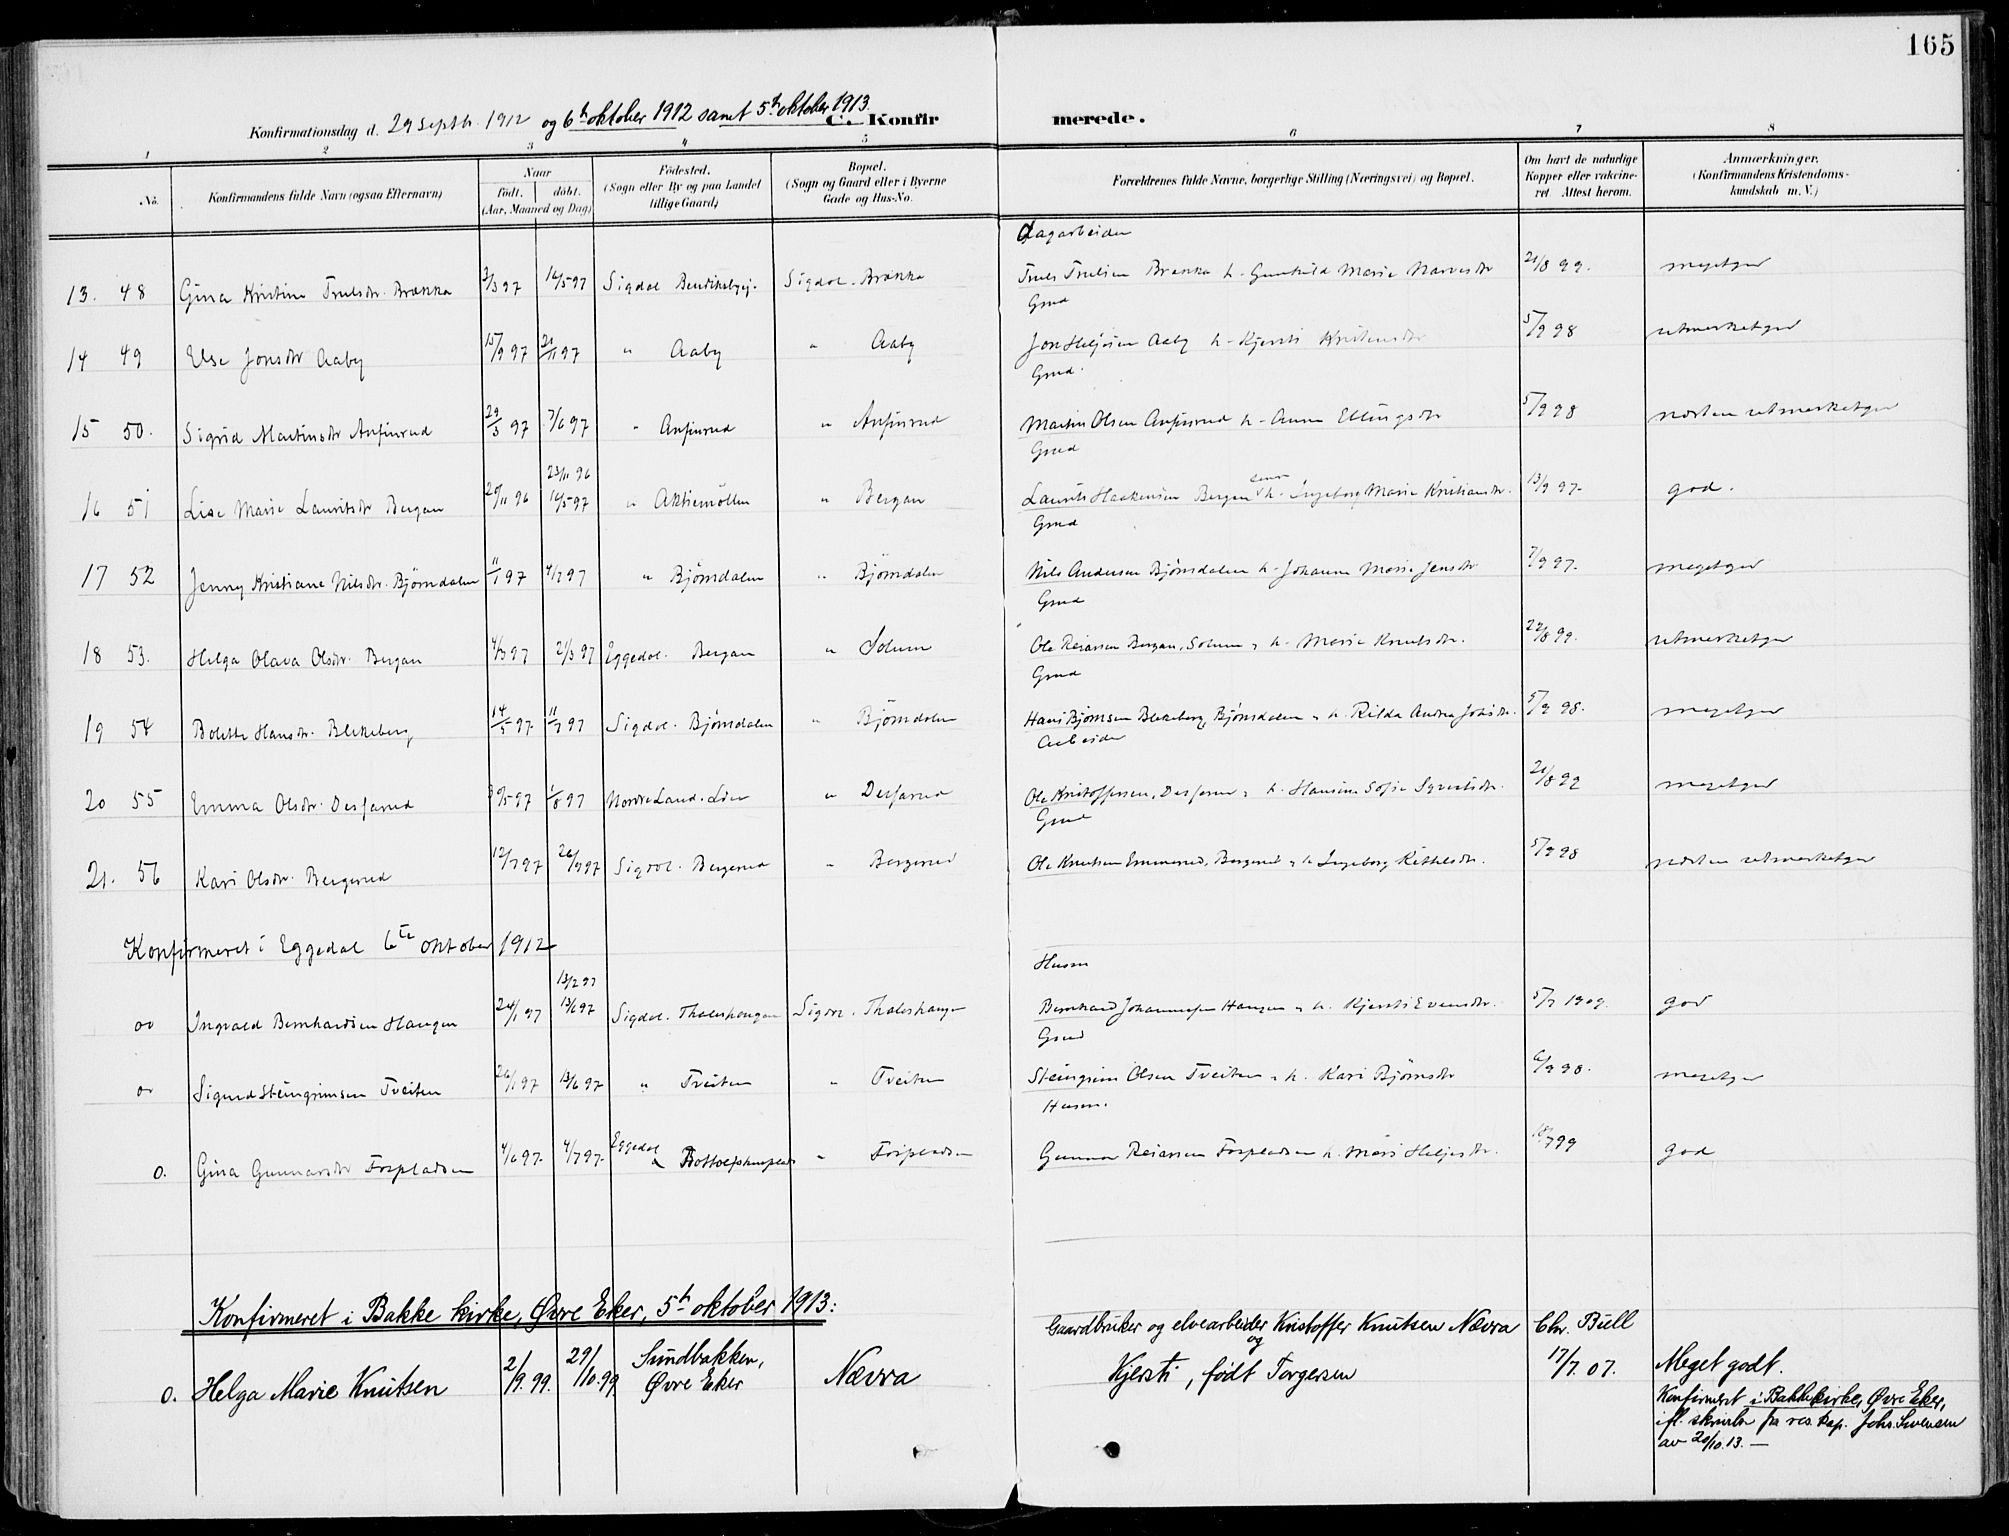 165
Konfirmationsdag d. 29 Septbr. 1912 og 6te oktober 1912 samt 5te oktober 1913. C. Konfirmerede.
1 2 3 4 5 6 7 8
No. Konfirmandens fulde Navn (ogsaa Efternavn) Naar født. døbt. (Aar, Maaned og Dag) Fødested. (Sogn eller By og paa Landet tillige Gaard) Bopæl. (Sogn og Gaard eller i Byerne Gade og Hus-No. Forældrenes fulde Navne, borgerlige Stilling (Næringsvei) og Bopæl. Om havt de naturlige Kopper eller vakcineret. Attest herom. Anmærkninger. (Konfirmandens Kristendomskundskab m. V.)
Dagarbeider
13. 48 Gina Kristine Trulsdr. Brækka 3/3 97 16/5 97 Sigdal Sigdal. Brække Truls Trulsen Brækka h. Gunhild Marie 21/8 99. megetgod
Grud
14 49 Else Jonsdr Aaby 15/9 97 21/11 97 " Aaby " Aaby Jon Heljesen Aaby h. Kjersti Kristensdr 5/9 98 utmerketgod
Grud.
15 50. Sigrid Martinsdr Anfinrud 29/3 97 7/6 97 " Anfinrud " Anfinrud Martin Olsen Anfinrud h. Anne Ellingsdr 5/9 98 næsten utmerketgod
Grud
16 51 Lise Marie Lauritsdr Bergan 20/11 96 23/11 96 16/5 97 " Aktiemöllen " Bergan Laurits Haakensen Bergan h. Ingeborg Marie Kristiansdr. 13/9 97. god.
Grud
17 52 Jenny Kristiane Nilsdr. Björndalen 11/1 97 4/7 97 " Björndalen " Björndalen Nils Andersen Björndalen h. Johanne Marie Jensdr 7/9 97. megetgod
Grud
18 53. Helga Olava Olsdr. Bergan 4/3 97 21/3 97 Eggedal. Bergan " Solum Ole Reiarsen Bergan, Solum, h. Marie Knutsdr. 22/8 99. utmerketgod
Grud
19 54 Bolette Hansdr. Blekeberg 14/5 97 11/7 97 Sigdal. Björndalen " Björndalen Hans Björnsen Blekeberg, Björndalen, h. Rilda Andrea Johsdr. 5/9 98. megetgod
Arbeider
20 55 Emma Olsdr. Desserud 1/8 97 Nordre Land. Lien " Desserud Ole Kristoffersen, h. Hansine Sofie Syvertsdr. 21/8 99 megetgod
Grud
21. 56 Kari Olsdr. Bergerud 12/7 97 26/9 97 Sigdal. Bergerud " Bergerud Ole Knutsen Emmerud, Bergerud, h Ingeborg Kittelsdr. 5/9 98 næsten utmerketgod
Konfirmeret i Eggedal 6te oktober 1912
Husm
Ingvald Bernhardsen Haugen 24/1 97 13/2 97 13/6 97 Sigdal. Thaleshaugen Sigdal. Thaleshaugen Bernhard Johannessen Haugen, h. Kjersti Evensdr. 5/7 1909. god
Grud
Sigurd Steingrimsen Tveiten 26/1 97 13/6 97 " Tveiten " Tveiten Steingrim Olsen Tveiten, h. Kari Björnsdr 6/9 98. megetgod
Husm.
o. Gina Gunnarsdr Fospladsen 4/6 97. 4/7 97. Eggedal " Fospladsen Gunnar Reiarsen Fospladsen h. Mari Heljesdr. 18/7 99 god
Konfirmeret i Bakke kirke, Øvre Eker, 5te oktober 1913:
Gaardbruker og elvearbeider Kristoffer Knutsen Nævra Chr. Biell
o. Helga Marie Knutsen 2/9. 99. 29/10. 99 Sundbakken, Øvre Eker Nævra og Kjersti, født Torgersen 17/7. 07. Meget godt.
Konfirmeret i Bakke kirke, Øvre Eker,
ifl. skrivelse fra res. kap. Johs. Svensen
av 20/10. 13. —